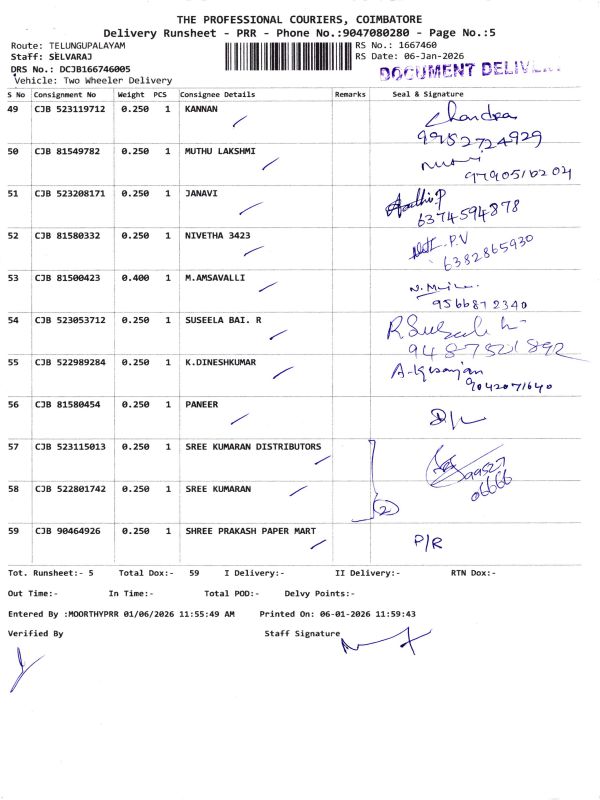 THE PROFESSIONAL COURIERS, COIMBATORE
Delivery Runsheet - PRR - Phone No.:9047080280 - Page No.:5
Route: TELUNGUPALAYAM RS No.: 1667460
Staff: SELVARAJ RS Date: 06-Jan-2026
DRS No.: DCJB166746005
Vehicle: Two Wheeler Delivery
DOCUMENT
S No Consignment No Weight PCS Consignee Details Remarks Seal & Signature
49 CJB 523119712 0.250 1 KANNAN Chandra
9952724929
50 CJB 81549782 0.250 1 MUTHU LAKSHMI
51 CJB 523208171 0.250 1 JANAVI
6374594878
52 CJB 81580332 0.250 1 NIVETHA 3423 P.V
6382865930
53 CJB 81500423 0.400 1 M.AMSAVALLI
9566872340
54 CJB 523053712 0.250 1 SUSEELA BAI. R
9487521892
55 CJB 522989284 0.250 1 K.DINESHKUMAR
9042071640
56 CJB 81580454 0.250 1 PANEER
57 CJB 523115013 0.250 1 SREE KUMARAN DISTRIBUTORS
58 CJB 522801742 0.250 1 SREE KUMARAN 2
59 CJB 90464926 0.250 1 SHREE PRAKASH PAPER MART P/R
Tot. Runsheet:- 5 Total Dox:- 59 I Delivery:- II Delivery:- RTN Dox:-
Out Time:- In Time:- Total POD:- Delvy Points:-
Entered By :MOORTHYPRR 01/06/2026 11:55:49 AM Printed On: 06-01-2026 11:59:43
Verified By Staff Signature